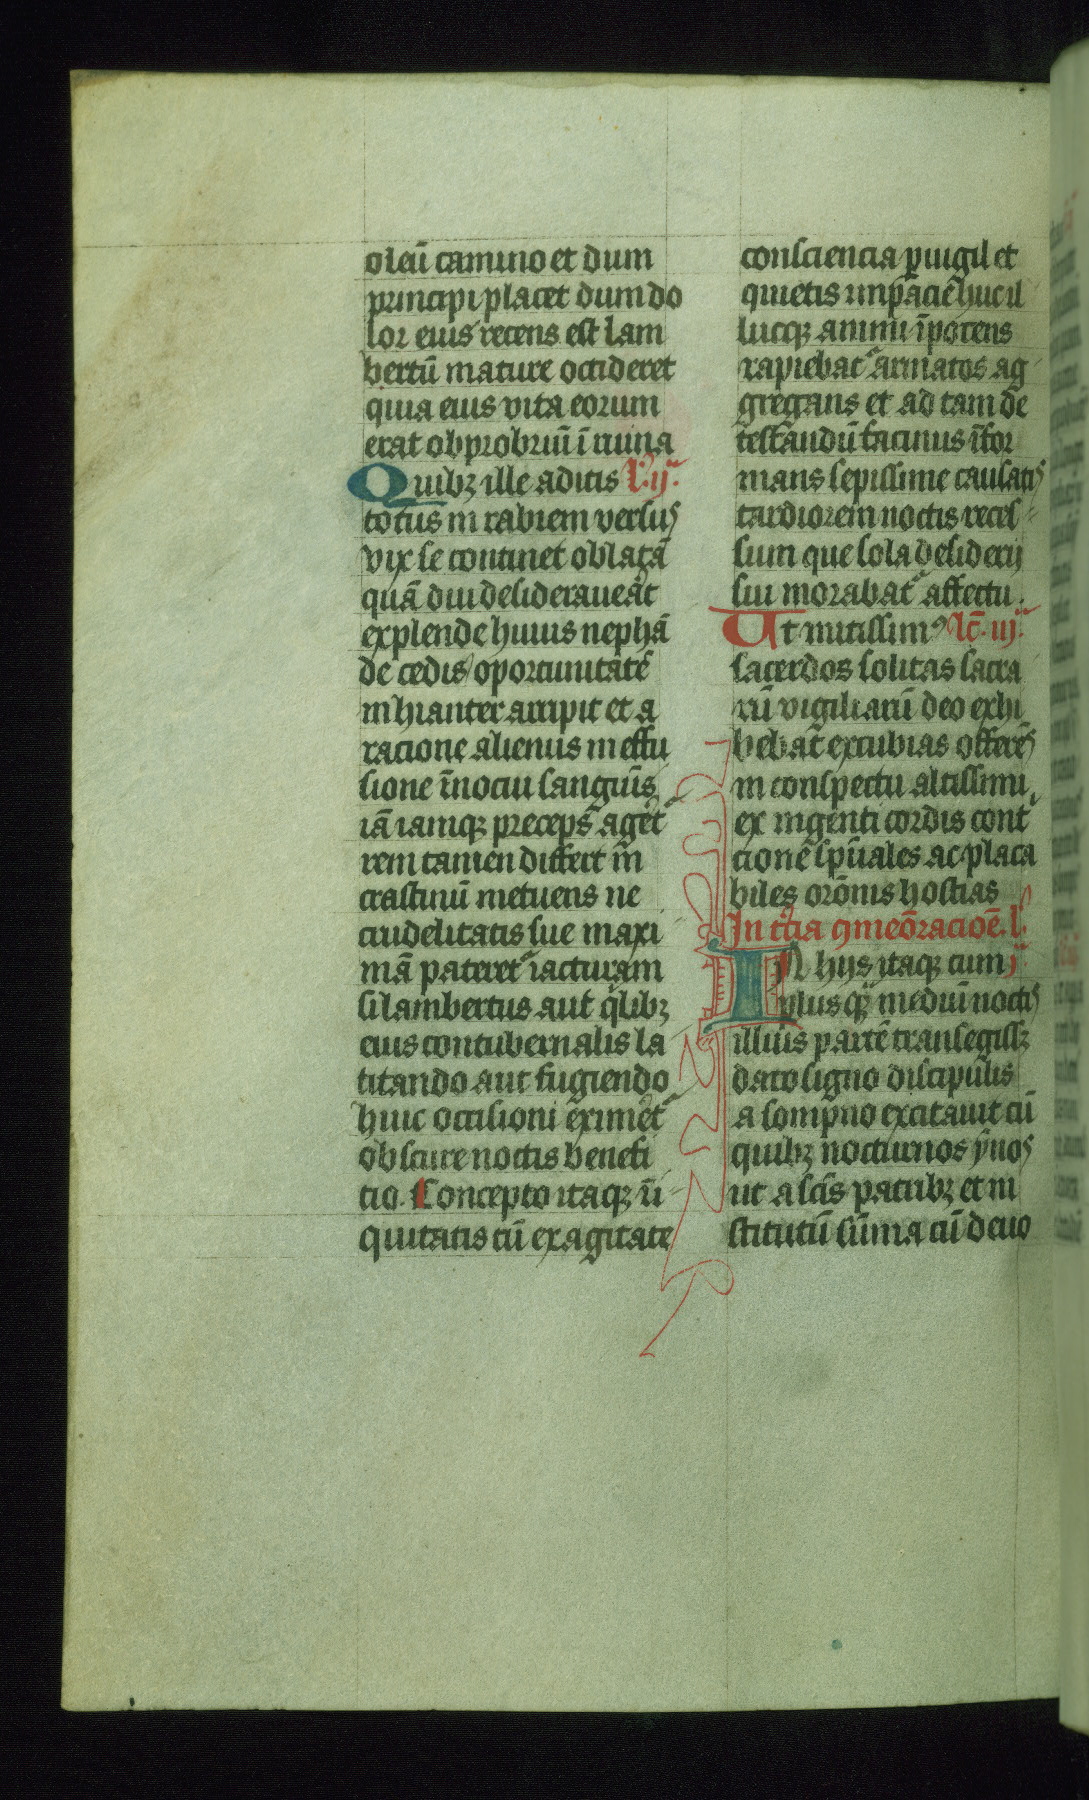 oleū camino et dum
principi placet dum do
lor eius recens est lam
bertū mature occideret
quia eius vita eorum
erat obprobriū ī ruina
Quibꝫ ille aditis l̄. ij.
totus in rabiem versꝰ
vix se continet oblatā
quā diu desideraueāt
explende huius nephā
de cedis oportunitatē
inhianter arripit et a
racione alienus in effu
sione īnocui sanguīs
iā iamqꝫ preceps ageret
rem tamen differt in
crastinū metuens ne
crudelitatis sue maxi
mā pateret iacturam
si lambertus aut qͥlibꝫ
eius contubernalis la
titando aut fugiendo
huic occisioni eximet
obscure noctis benefi
cio. Concepto itaqꝫ ī
quitatis cū exagitate
consciencia ꝑuigil et
quietis inpaciē huc il
lucqꝫ animi īpotens
rapiebat armatos ag
gregans et ad tam de
testandū facinus īfor
mans sepissime causatꝰ
tardiorem noctis reces
sum que sola desiderij
sui morabat affectū.
Ut mitissimꝰ lc̄. iij.
sacerdos solitas sacra
rū vigiliarū deo exhi
bebat excubias offerēs
in conspectu altissimi
ex ingenti cordis cont
cionē sp̄uales ac placa
biles orōnis hostias
In tͨia ɔmeōracioē. l̄.
IN hijs itaqꝫ cum j
plus qͣꝫ mediū noctis
illius partē transegissꝫ
dato signo discipulis
a sompno excitauit cū
quibꝫ nocturnos ẏnos
ut a scīs patribꝫ et in
stitutū sūma cū deuo